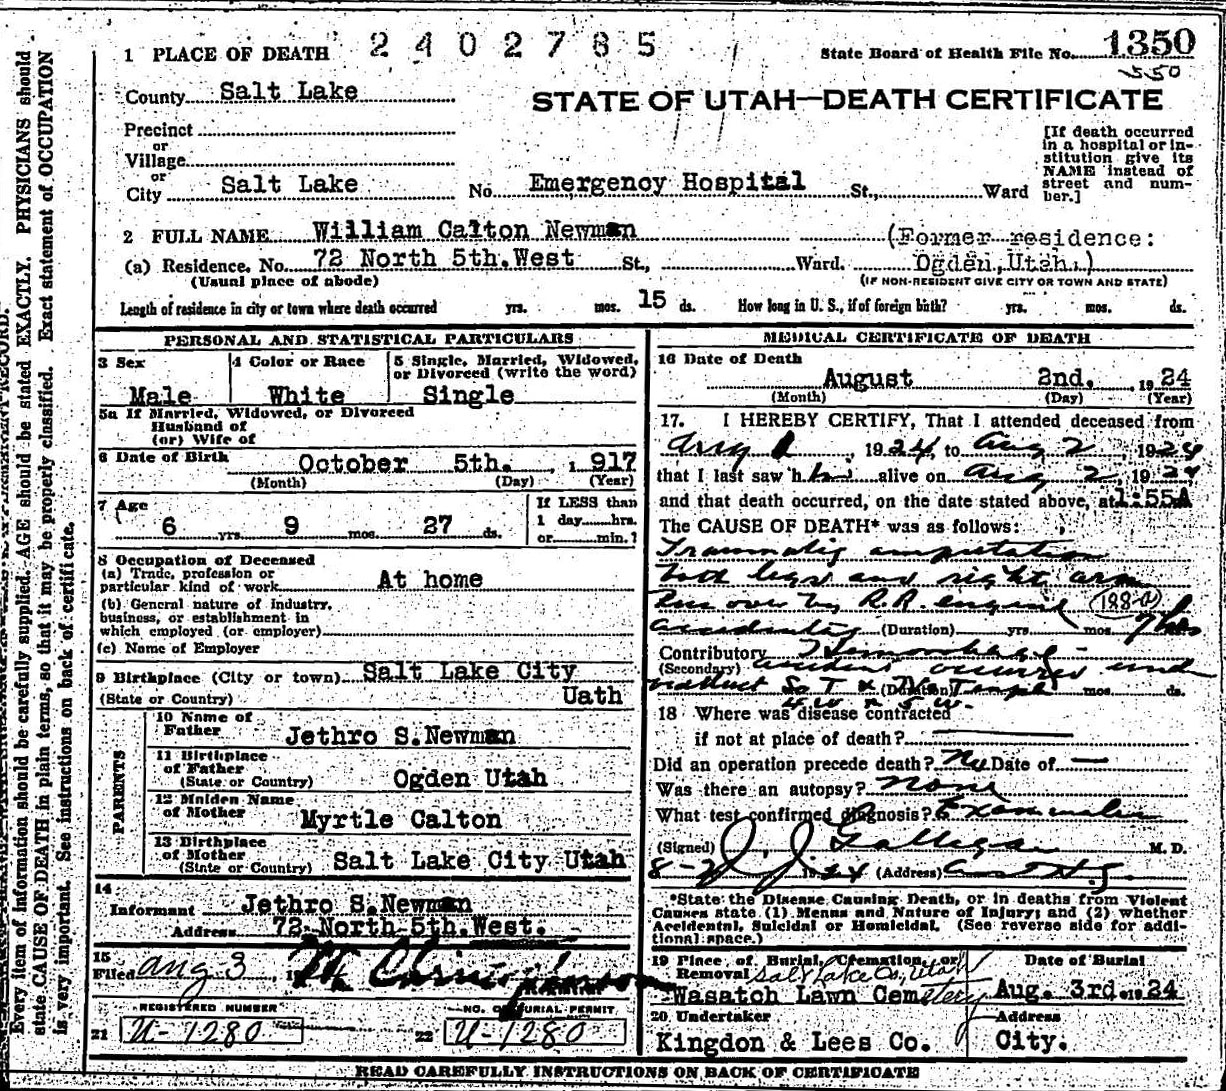 2402785
1 PLACE OF DEATH
State Board of Health File No. 1350
550
County Salt Lake
STATE OF UTAH—DEATH CERTIFICATE
Precinct
or
Village
or
City Salt Lake No. Emergency Hospital St., Ward
[If death occurred
in a hospital or in-
stitution give its
NAME instead of
street and num-
ber.]
2 FULL NAME William Calton Newman (Former residence:
(a) Residence. No. 72 North 5th.West St., Ward. Ogden,Utah.)
(Usual place of abode) (IF NON-RESIDENT GIVE CITY OR TOWN AND STATE)
Length of residence in city or town where death occurred yrs. mos. 15 ds. How long in U. S., if of foreign birth? yrs. mos. ds.
PERSONAL AND STATISTICAL PARTICULARS
3 Sex
Male
4 Color or Race
White
5 Single, Married, Widowed,
or Divorced (write the word)
Single
5a If Married, Widowed, or Divorced
Husband of
(or) Wife of
6 Date of Birth October 5th. , 1917
(Month) (Day) (Year)
7 Age
6 yrs. 9 mos. 27 ds.
If LESS than
1 day hrs.
or min.?
8 Occupation of Deceased
(a) Trade, profession or
particular kind of work At home
(b) General nature of industry,
business, or establishment in
which employed (or employer)
(c) Name of Employer
9 Birthplace (City or town) Salt Lake City
(State or Country) Uath
PARENTS
10 Name of
Father Jethro S.Newman
11 Birthplace
of Father
(State or Country) Ogden Utah
12 Maiden Name
of Mother Myrtle Calton
13 Birthplace
of Mother
(State or Country) Salt Lake City Utah
14
Informant Jethro S.Newman
Address 72 North 5th.West.
15
Filed Aug 3, 19
REGISTERED NUMBER
21 U-1280
NO. OF BURIAL PERMIT
22 U-1280
MEDICAL CERTIFICATE OF DEATH
16 Date of Death
August 2nd. , 1924
(Month) (Day) (Year)
17. I HEREBY CERTIFY, That I attended deceased from
Aug 1, 1924, to Aug 2, 1924
that I last saw him alive on Aug 2, 1924
and that death occurred, on the date stated above, at 1:55A
The CAUSE OF DEATH* was as follows:
Traumatic amputation
both legs and right arm
Run over by R.R. engine (188-a)
accidental (Duration) yrs. mos. 7 hrs
Contributory Hemorrhage
(Secondary) accident occurred
So T & (Duration) Temple mos. ds.
4 W 5 W.
18 Where was disease contracted
if not at place of death?
Did an operation precede death? No Date of —
Was there an autopsy? None
What test confirmed diagnosis? Examination
(Signed) J. J. Galligan M. D.
8-2, 1924 (Address)
*State the Disease Causing Death, or in deaths from Violent
Causes state (1) Means and Nature of Injury; and (2) whether
Accidental, Suicidal or Homicidal. (See reverse side for addi-
tional space.)
19 Place of Burial, Cremation, or
Removal Salt Lake Co, Utah
Wasatch Lawn Cemetery
Date of Burial
Aug. 3rd. 1924
20 Undertaker
Kingdon & Lees Co.
Address
City.
READ CAREFULLY INSTRUCTIONS ON BACK OF CERTIFICATE
Every item of information should be carefully supplied. AGE should be stated EXACTLY. PHYSICIANS should
state CAUSE OF DEATH in plain terms, so that it may be properly classified. Exact statement of OCCUPATION
is very important. See instructions on back of certificate.